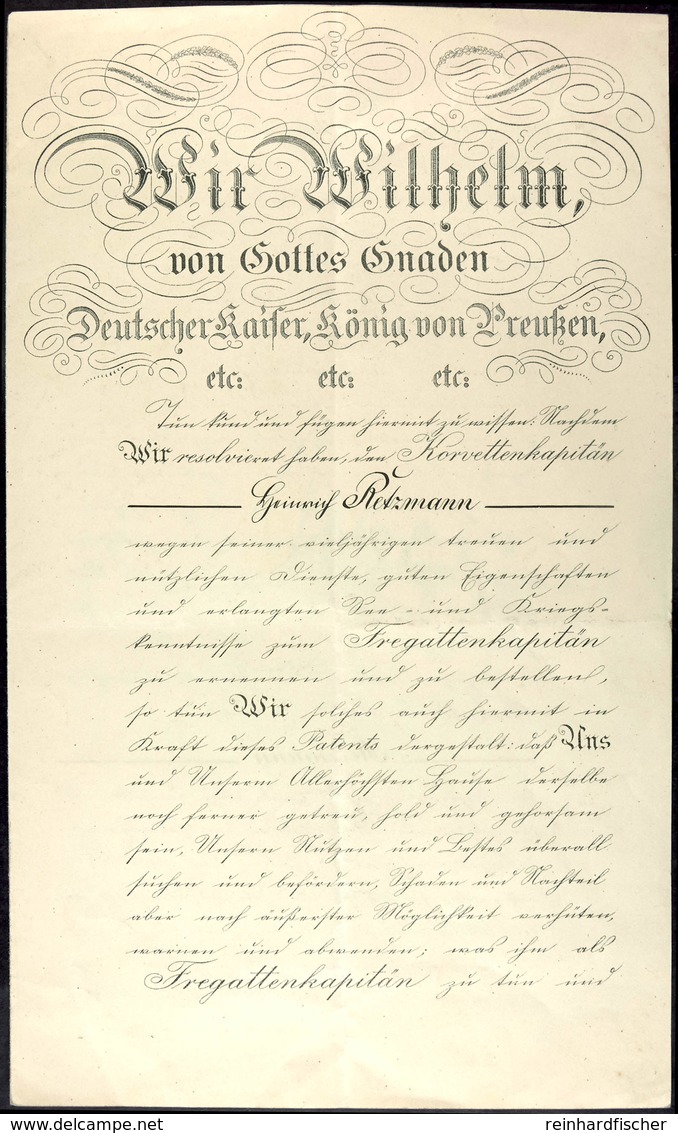 Wir Wilhelm,
von Gottes Gnaden
Deutscher Kaiser, König von Preußen,
etc: etc: etc:
Tun kund und fügen hiermit zu wissen: Nachdem
Wir resolvieret haben, den Korvettenkapitän
Heinrich Retzmann
wegen seiner vieljährigen treuen und
nützlichen Dienste, guten Eigenschaften
und erlangten See- und Kriegs-
kenntnisse zum Fregattenkapitän
zu ernennen und zu bestellen,
so tun Wir solches auch hiermit in
Kraft dieses Patents dergestalt: daß Uns
und Unserm Allerhöchsten Hause derselbe
noch ferner getreu, hold und gehorsam
sein, Unsern Nutzen und Bestes überall
suchen und befördern, Schaden und Nachteil
aber nach äußerster Möglichkeit verhüten,
warnen und abwenden; was ihm als
Fregattenkapitän zu tun und
delcampe.net
reinhardfischer